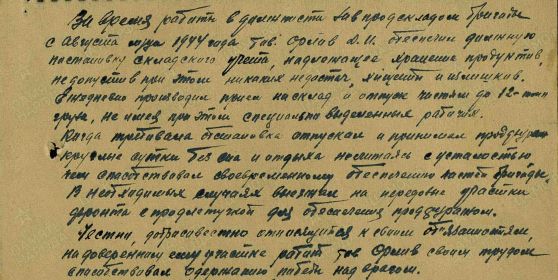 За время работы в должности зав продскладом бригады
с августа м-ца 1944 года тов. Орлов Д.И. обеспечил должную
постановку складского учета, надлежащее хранение продуктов,
не допустив при этом никаких недостач, хищений и излишков.
Ежедневно производил прием на склад и отпуск частям до 12-ти тн
груза, не имея при этом специально выделенных рабочих.
Когда требовала обстановка отпускал и принимал продфураж
круглые сутки без сна и отдыха не считаясь с усталостью
чем способствовал своевременному обеспечению частей бригады.
В необходимых случаях выезжал на передовые участки
фронта с продлетучкой для обеспечения продфуражом.
Честно, добросовестно относящийся к своим обязанностям,
на доверенном ему участке работы тов Орлов своим трудом
способствовал одержанию победы над врагом.